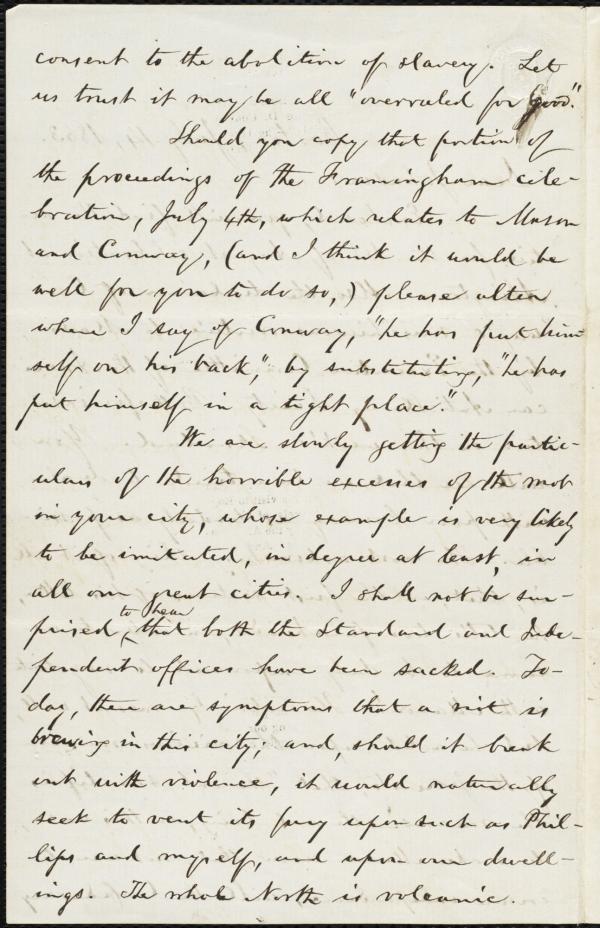 consent to the abolition of slavery. Let
us trust it may be all "overruled for good."
Should you copy that portion of
the proceedings of the Framingham cele-
bration, July 4th, which relates to Mason
and Conway, (and I think it would be
well for you to do so,) please alter
where I say of Conway, "he has put him-
self on his back," by substituting, "he has
put himself in a tight place."
We are slowly getting the partic-
ulars of the horrible excesses of the mob
in your city, whose example is very likely
to be imitated, in degree at least, in
all our great cities. I shall not be sur-
prised to hear that both the Standard and Inde-
pendent offices have been sacked. To-
day, there are symptoms that a riot is
brewing in this city; and, should it break
out with violence, it would naturally
seek to vent its fury upon such as Phil-
lips and myself, and upon our dwell-
ings. The whole North is volcanic.